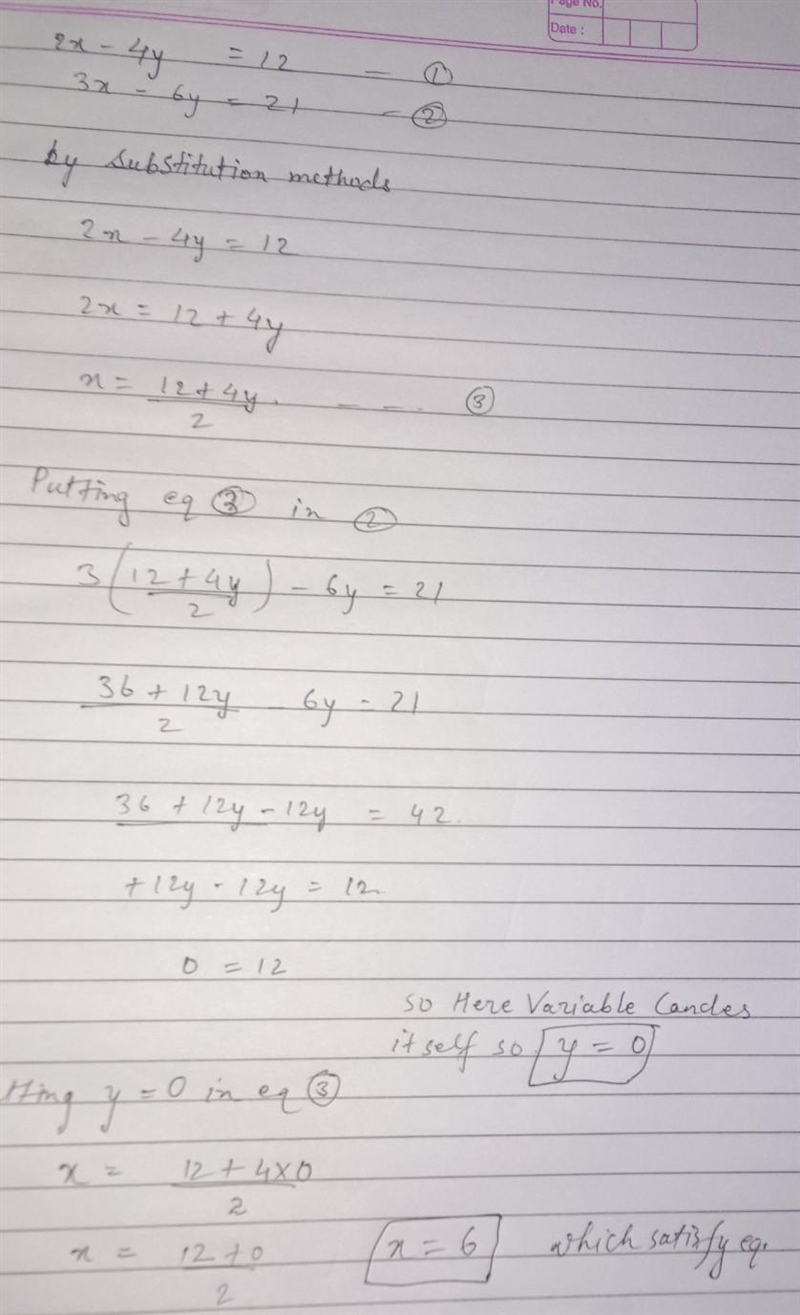 Page No.
Date :
2x - 4y = 12 - ①
3x - 6y = 21 - ②
by substitution methods
2x - 4y = 12
2x = 12 + 4y
x = (12 + 4y)/2 . - - . ③
Putting eq ③ in ②
3((12 + 4y)/2) - 6y = 21
(36 + 12y)/2 - 6y = 21
36 + 12y - 12y = 42.
+ 12y - 12y = 12
0 = 12
so Here Variable Cancles
itself so y = 0
tting y = 0 in eq ③
x = (12 + 4x0)/2
x = (12 + 0)/2 x = 6 which satisfy eq.